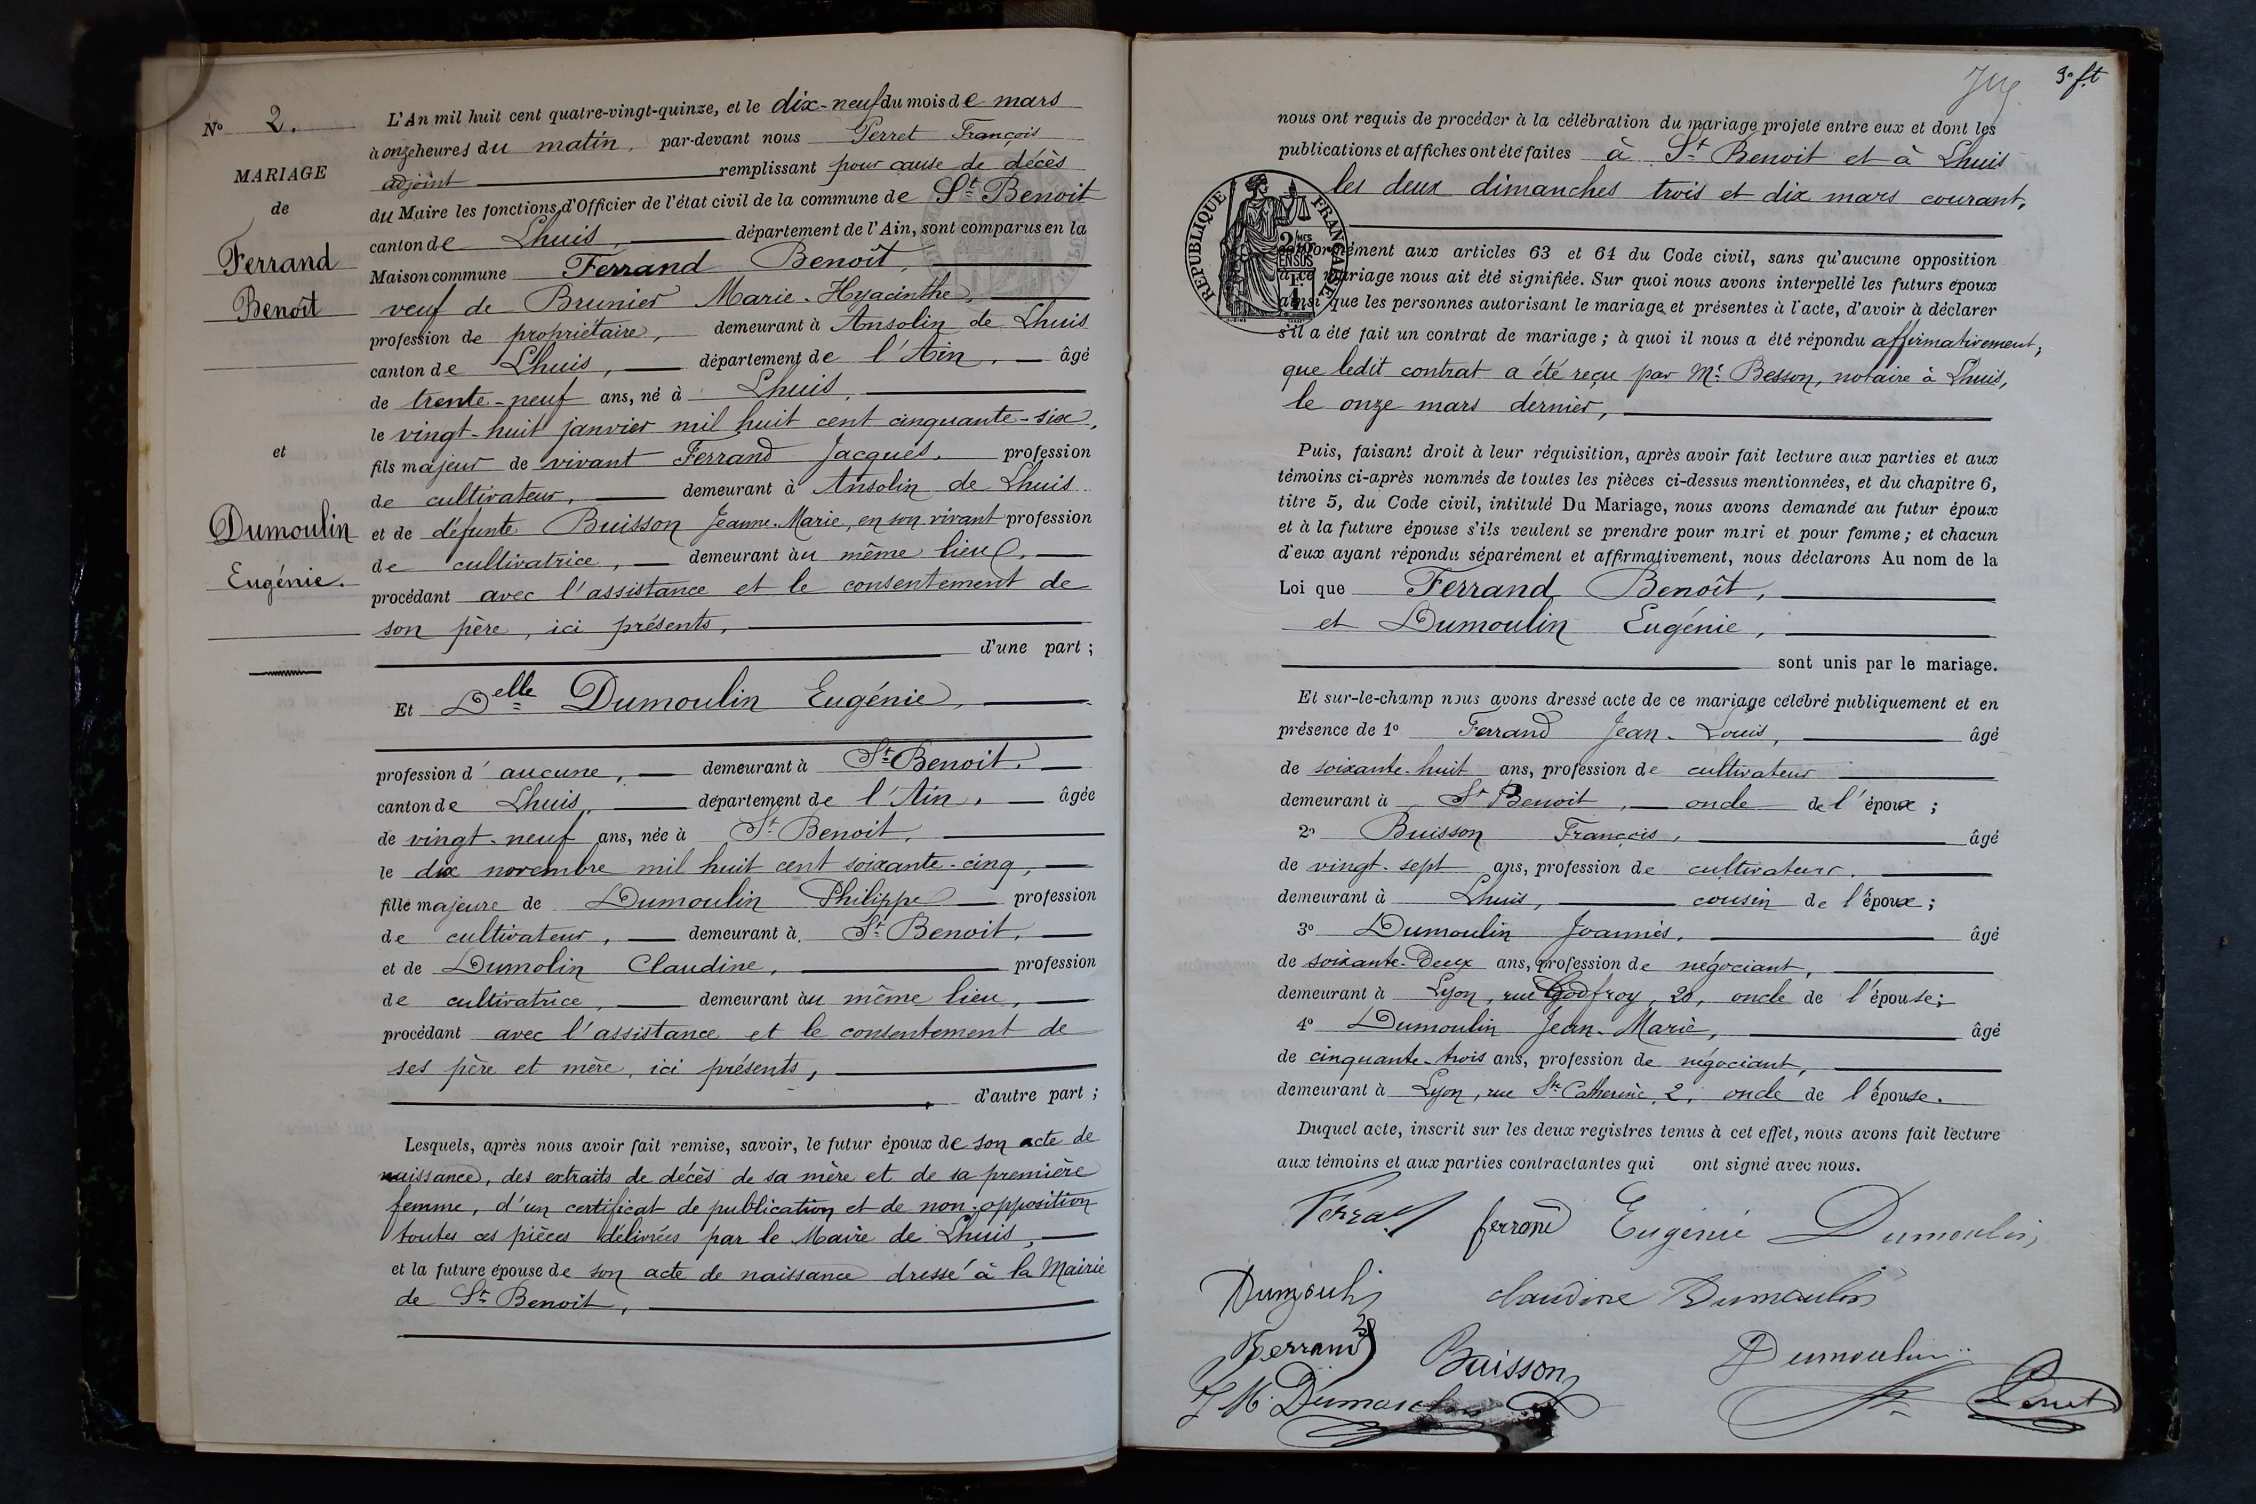 N° 2.
MARIAGE
de
Ferrand
Benoît
et
Dumoulin
Eugénie.
L'An mil huit cent quatre-vingt-quinze, et le dix-neuf du mois de mars
à onze heures du matin, par-devant nous Perret François
adjoint remplissant pour cause de décès
du Maire les fonctions d'Officier de l'état civil de la commune de St Benoit
canton de Lhuis, département de l'Ain, sont comparus en la
Maison commune Ferrand Benoît,
veuf de Brunier Marie-Hyacinthe,
profession de propriétaire, demeurant à Ansolin de Lhuis
canton de Lhuis, département de l'Ain, âgé
de trente-neuf ans, né à Lhuis,
le vingt-huit janvier mil huit cent cinquante-six,
fils majeur de vivant Ferrand Jacques, profession
de cultivateur, demeurant à Ansolin de Lhuis
et de défunte Buisson Jeanne-Marie, en son vivant profession
de cultivatrice, demeurant au même lieu,
procédant avec l'assistance et le consentement de
son père, ici présents,
d'une part;
Et Delle Dumoulin Eugénie,
profession d'aucune, demeurant à St Benoit,
canton de Lhuis, département de l'Ain, âgée
de vingt-neuf ans, née à St Benoit,
le dix novembre mil huit cent soixante-cinq,
fille majeure de Dumoulin Philippe profession
de cultivateur, demeurant à St Benoit,
et de Dumolin Claudine, profession
de cultivatrice, demeurant au même lieu,
procédant avec l'assistance et le consentement de
ses père et mère, ici présents,
d'autre part;
Lesquels, après nous avoir fait remise, savoir, le futur époux de son acte de
naissance, des extraits de décès de sa mère et de sa première
femme, d'un certificat de publication et de non-opposition
toutes ces pièces délivrées par le Maire de Lhuis,
et la future épouse de son acte de naissance dressé à la Mairie
de St Benoit,
3e ft
nous ont requis de procéder à la célébration du mariage projeté entre eux et dont les
publications et affiches ont été faites à St Benoit et à Lhuis
les deux dimanches trois et dix mars courant,
RÉPUBLIQUE FRANÇAISE
conformément aux articles 63 et 64 du Code civil, sans qu'aucune opposition
à ce mariage nous ait été signifiée. Sur quoi nous avons interpellé les futurs époux
ainsi que les personnes autorisant le mariage et présentes à l'acte, d'avoir à déclarer
s'il a été fait un contrat de mariage; à quoi il nous a été répondu affirmativement,
que ledit contrat a été reçu par Me Besson, notaire à Lhuis,
le onze mars dernier,
Puis, faisant droit à leur réquisition, après avoir fait lecture aux parties et aux
témoins ci-après nommés de toutes les pièces ci-dessus mentionnées, et du chapitre 6,
titre 5, du Code civil, intitulé Du Mariage, nous avons demandé au futur époux
et à la future épouse s'ils veulent se prendre pour mari et pour femme; et chacun
d'eux ayant répondu séparément et affirmativement, nous déclarons Au nom de la
Loi que Ferrand Benoît,
et Dumoulin Eugénie,
sont unis par le mariage.
Et sur-le-champ nous avons dressé acte de ce mariage célébré publiquement et en
présence de 1° Ferrand Jean-Louis, âgé
de soixante-huit ans, profession de cultivateur
demeurant à St Benoit, oncle de l'époux;
2° Buisson François, âgé
de vingt-sept ans, profession de cultivateur,
demeurant à Lhuis, cousin de l'époux;
3° Dumoulin Joannès, âgé
de soixante-Deux ans, profession de négociant,
demeurant à Lyon, rue Godfroy, 20, oncle de l'épouse;
4° Dumoulin Jean-Marie, âgé
de cinquante-trois ans, profession de négociant,
demeurant à Lyon, rue Ste Catherine, 2, oncle de l'épouse.
Duquel acte, inscrit sur les deux registres tenus à cet effet, nous avons fait lecture
aux témoins et aux parties contractantes qui ont signé avec nous.
ferrand Eugénie Dumoulin
Dumoulin claudine Dumoulin
Ferrand Buisson Dumoulin
J M Dumoulin Perret